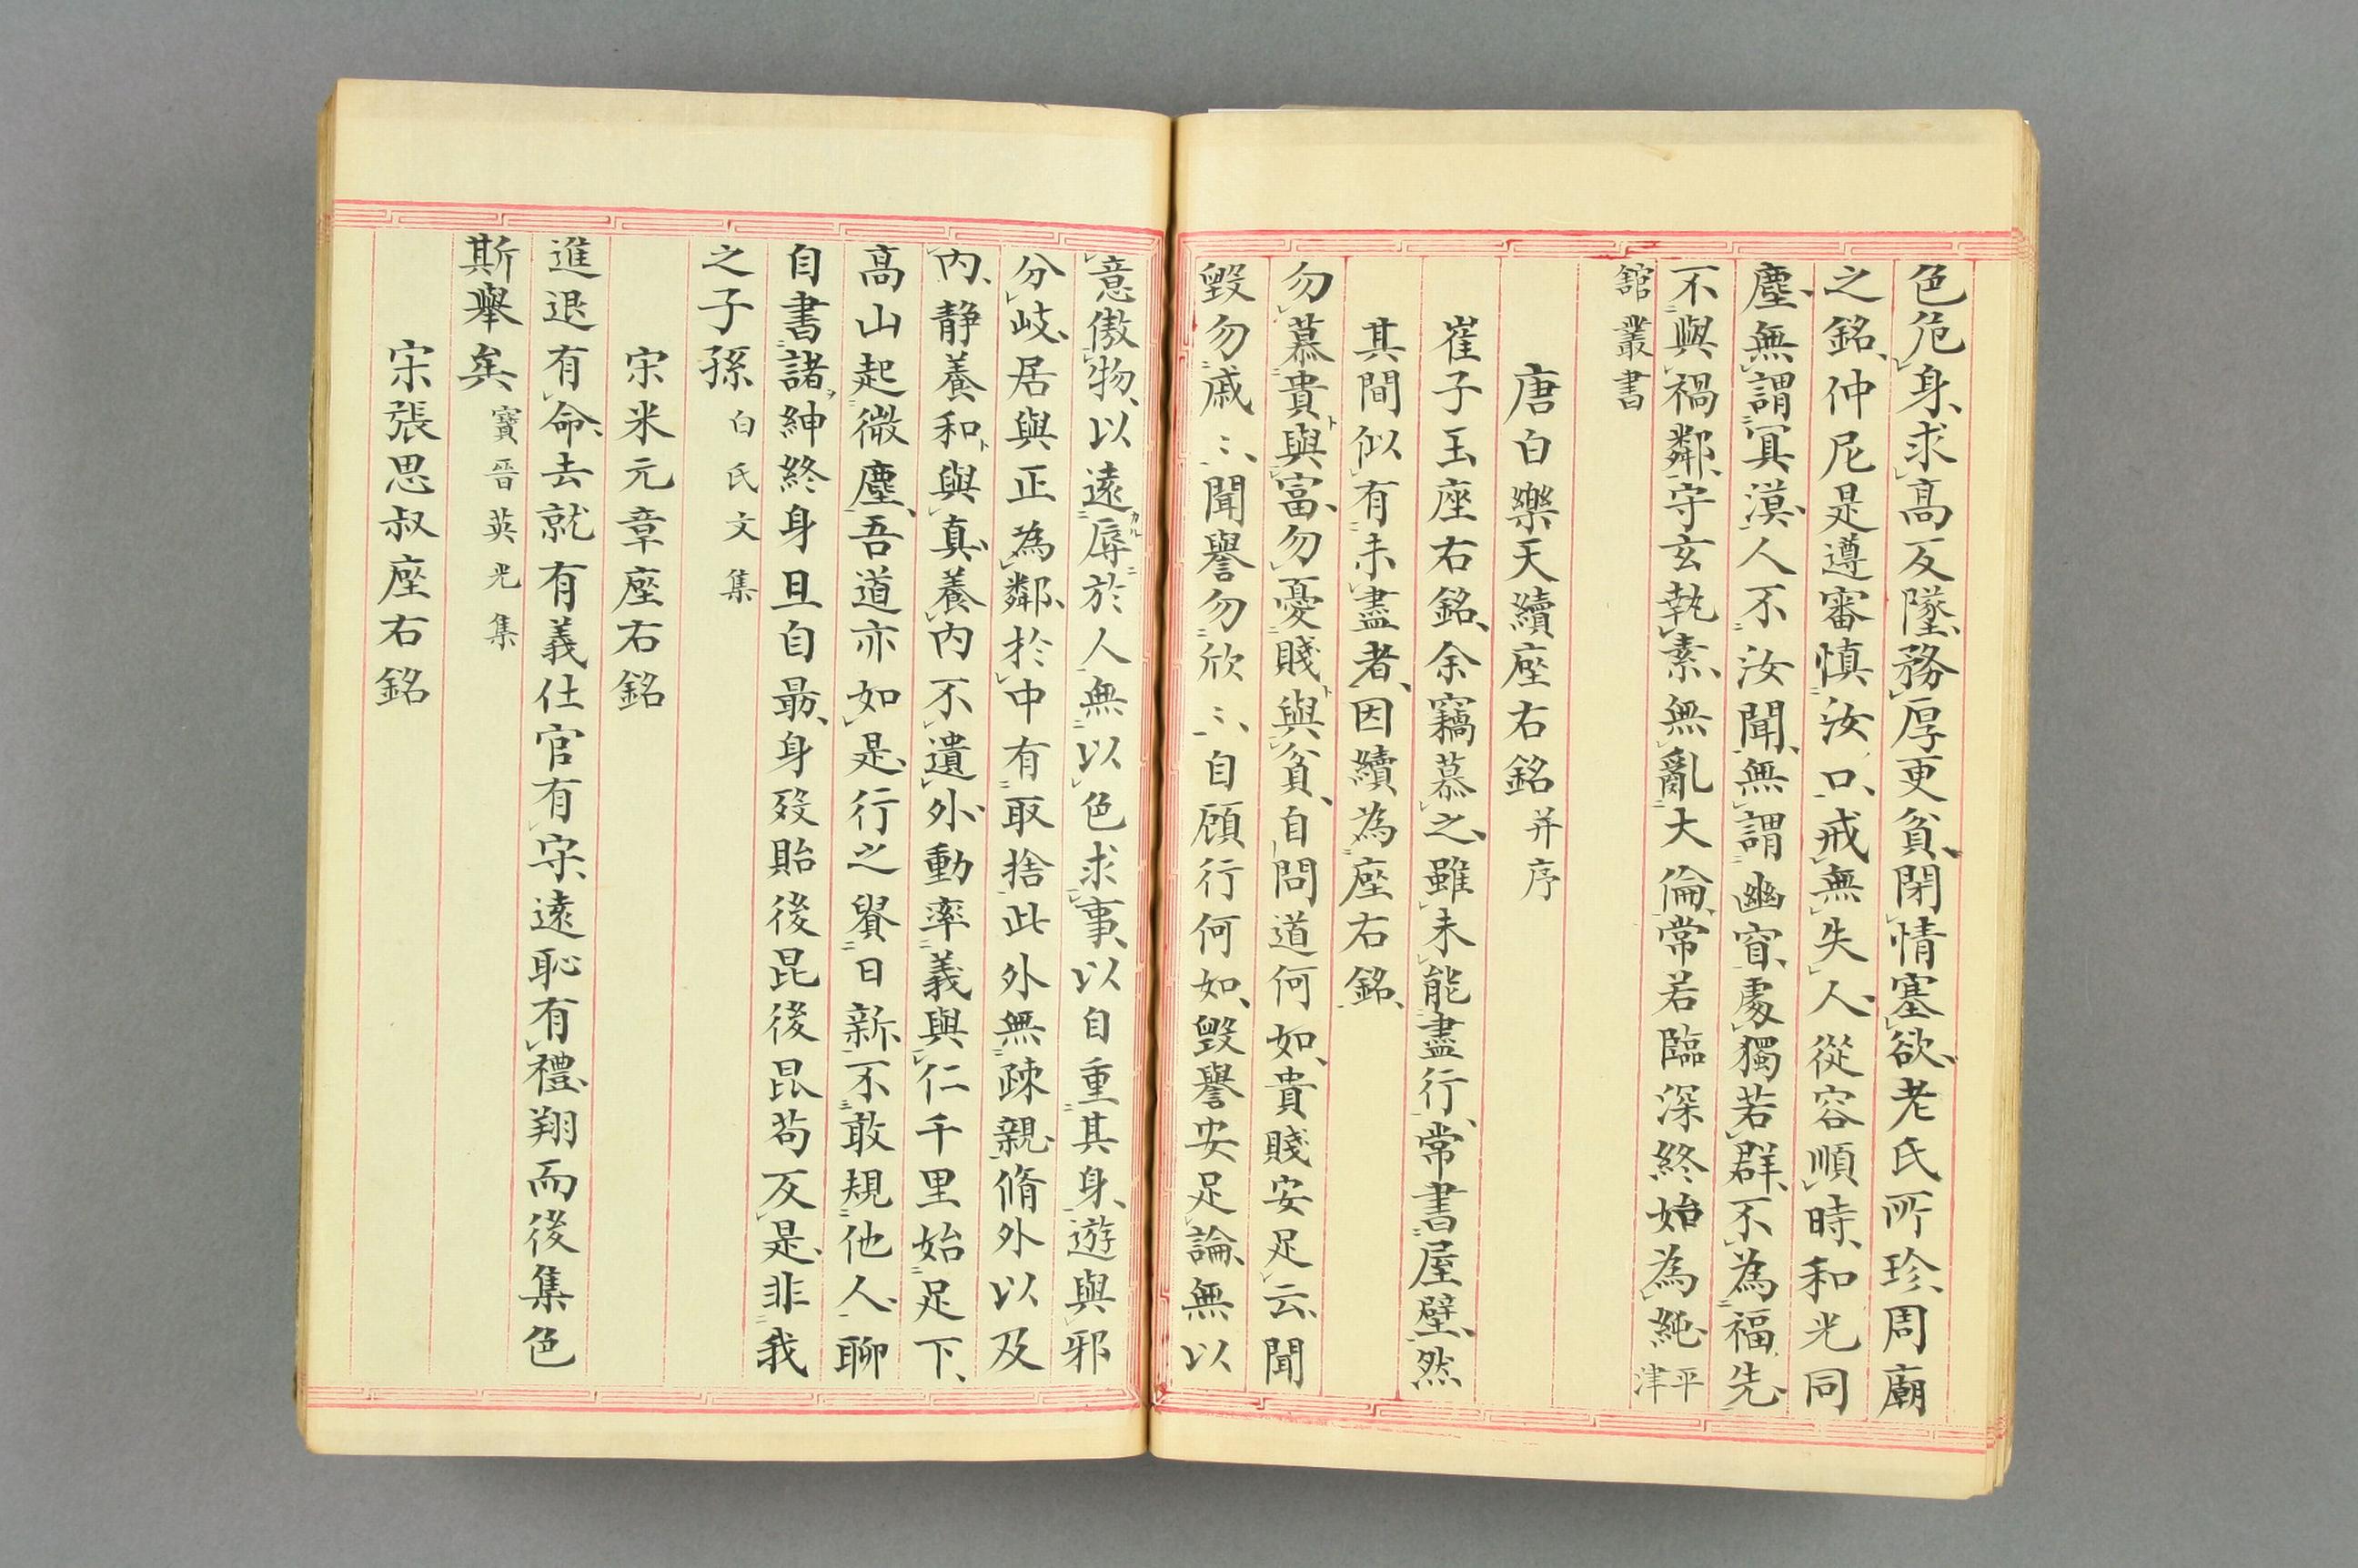 色危身、求高反墜、務厚更貧、閉情塞欲、老氏所珍、周廟
之銘、仲尼是遵審慎汝口、戒無失人、從容順時、和光同
塵、無謂冥漠、人不汝聞、無謂幽窅、處獨若群、不為福先、
不與禍鄰、守玄執素、無亂大倫、常若臨深終始為純、平津
舘叢書
唐白樂天續座右銘并序
崔子玉座右銘、余竊慕之、雖未能盡行、常書屋壁、然
其間似有未盡者、因續為座右銘、
勿慕貴與富、勿憂賤與貧、自問道何如、貴賤安足云、聞
毀勿戚〻、聞譽勿欣〻、自顧行何如、毀譽安足論、無以
意傲物、以遠辱於人無以色求事、以自重其身、遊與邪
分岐、居與正為鄰、於中有取捨此外無疎親、脩外以及
內、静養和與真、養內不遺外、動率義與仁千里始足下、
高山起微塵、吾道亦如是、行之貴日新、不敢規他人、聊
自書諸紳終身且自勗、身歿貽後昆後昆苟反是、非我
之子孫 白氏文集
宋米元章座右銘
進退有命、去就有義仕官有守、遠恥有禮、翔而後集色
斯舉矣 寶晉英光集
宋張思叔座右銘